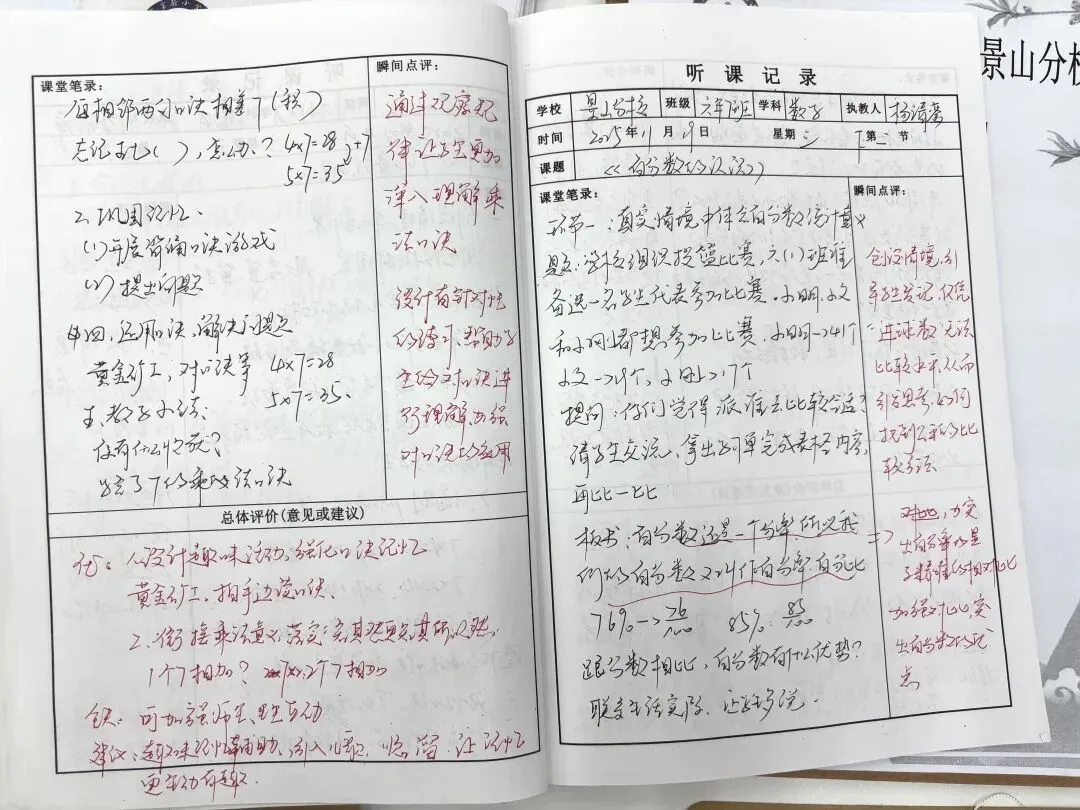 课堂笔录：
每相邻两句口诀相差7（积）
忘记五七（ ），怎么办？4×7=28 +7
5×7=35
2、巩固记忆、
(1)开展背诵口诀游戏
(2)提出问题
四、运用口诀，解决问题
黄金矿工，对口诀等 4×7=28
5×7=35、
五、教学小结：
你有什么收获？
学会了7的乘法口诀
瞬间点评：
通过观察规
律让学生更加
深入理解乘
法口诀
设计有针对性
的练习，帮助学
生给对口诀进
行理解，加强
对口诀的应用
总体评价(意见或建议)
优：1、设计趣味活动，强化口诀记忆
黄金矿工，拍手边读口诀、
2、衔接乘法意义落实：
1个7相加？ 2个7相加
缺：可加强师生、生生互动
建议：趣味 辅助，引入儿歌、 让记忆
更生动有趣、
听 课 记 录
学校 景山分校 班级 六年 班 学科 数学 执教人
时间 2025年11月19日 星期三 下第二节
课题 《百分数的认识》
课堂笔录：
环节一：真实情境中体会百分数统计意义
题：学校组织投篮比赛，六(1)班准
备选一名学生代表参加比赛。小明、小文
和小刚都想参加比赛，小明→41个
小文→19个，小刚→17个
提问：你们觉得派谁去比较合适？
请学生交流，拿出学习单完成表格内容，
再比一比
板书：百分数还是一个分率所以我
们的百分数又叫作百分率百分比
76%→76/100 85%：85/100
跟分数相比，百分数有什么优势？
联系生活实际、让学生多说、
瞬间点评：
创设情境，引
导学生发现，仅凭
"进球数"无法
比较水平，从而
引发思考，如何
找到公平的比
较方法
=> 对比，
出百分率
加强对比，突
出百分数的优
点
景山分校